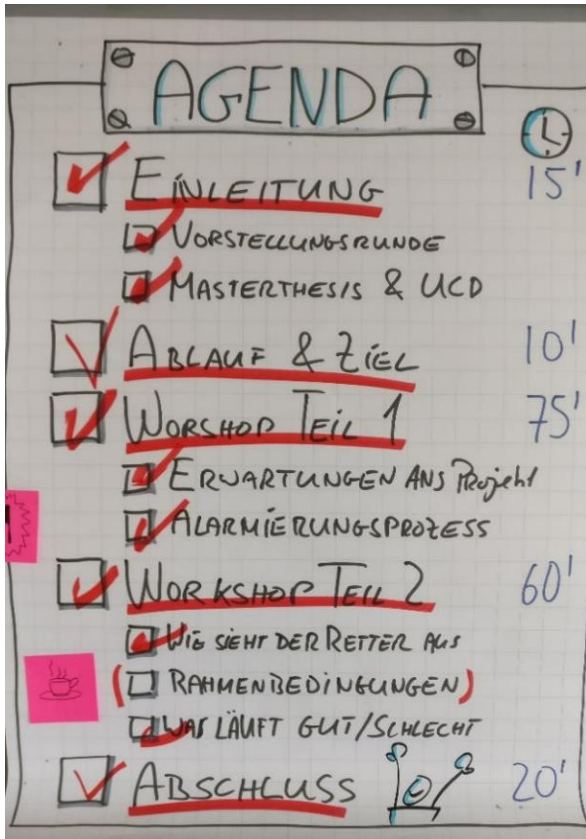 AGENDA
EINLEITUNG 15'
VORSTELLUNGSRUNDE
MASTERTHESIS & UCD
ABLAUF & ZIEL 10'
WORSHOP TEIL 1 75'
ERWARTUNGEN ANS Projekt
ALARMIERUNGSPROZESS
WORKSHOP TEIL 2 60'
WIE SIEHT DER RETTER AUS
(RAHMENBEDINGUNGEN)
WAS LÄUFT GUT/SCHLECHT
ABSCHLUSS 20'